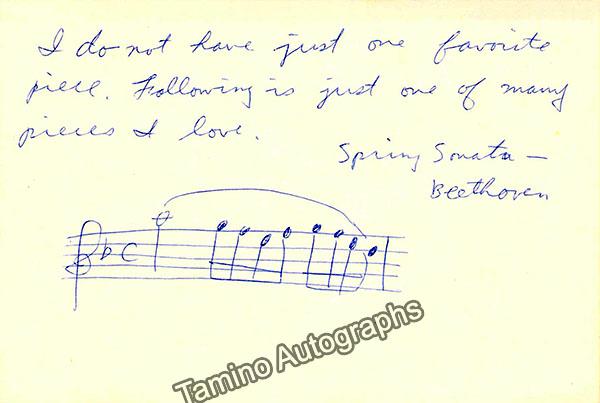 I do not have just one favorite
piece. Following is just one of many
pieces I love.
Spring Sonata –
Beethoven
C
Tamino Autographs